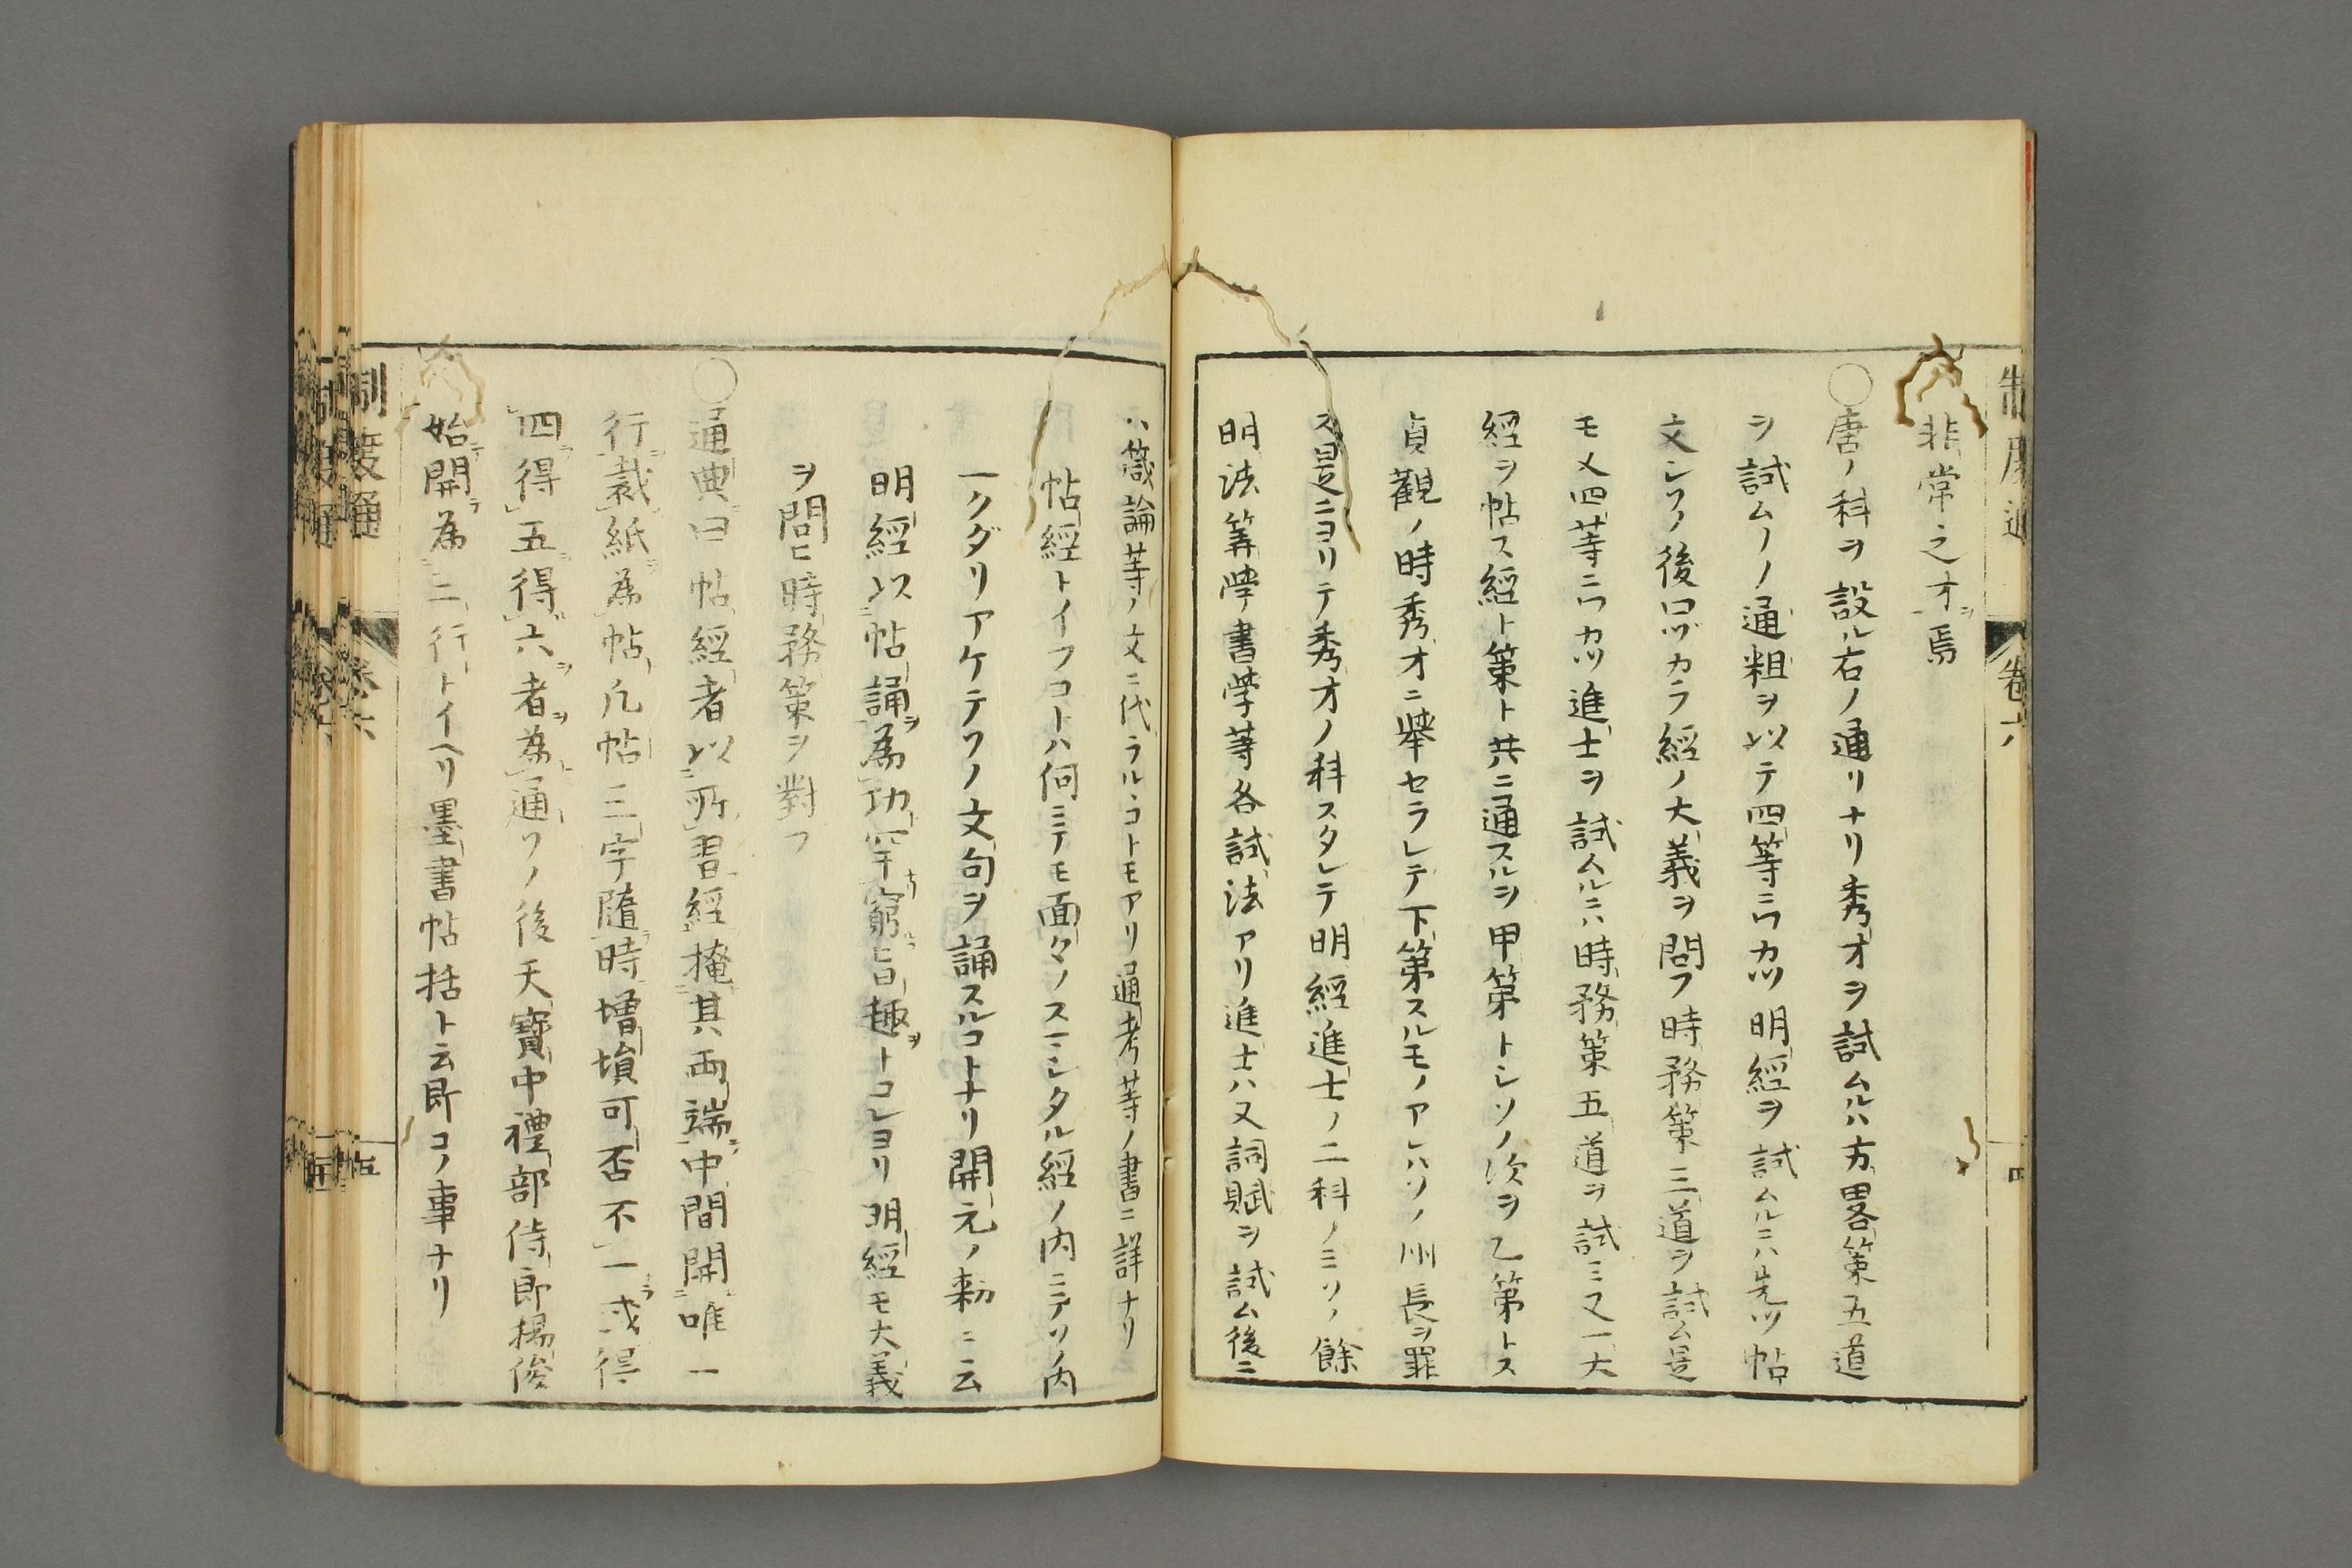 非常之才ヲ焉
〇唐ノ科ヲ設ル右ノ通リナリ秀才ヲ試ムルハ方畧策五道
ヲ試ム丿ノ通粗ヲ以テ四等ニワカツ明經ヲ試ムルニハ先ツ帖
文シソノ後口ヅカラ經ノ大義ヲ問フ時務策三道ヲ試ム是
モ又四等ニワカツ進士ヲ試ムルニハ時務策五道ヲ試ミ又一大
經ヲ帖ス經ト策ト共ニ通スルヲ甲第トシソノ次ヲ乙第トス
貞觀ノ時秀才ニ舉セラレテ下第スルモノアレハソノ州長ヲ罪
ス是ニヨリテ秀才ノ科スタレテ明經進士ノ二科ノミソノ餘
明法筭學書学等各試法アリ進士ハ又詞賦ヲ試ム後ニ
ハ箴論等ノ文ニ代ラルヽコトモアリ通考等ノ書ニ詳ナリ
帖經トイフコトハ何ニテモ面々ノスマシタル經ノ内ニテソノ内
一クダリアケテソノ文句ヲ誦スルコトナリ開元ノ勅ニ云
明經以帖誦ヲ為功罕窮旨趣ヲトコレヨリ明經モ大義
ヲ問ヒ時務策ヲ對フ
〇通典曰帖經者以所習經掩其兩端中間開唯一
行裁紙為帖凡帖三字隨時增損可否不一或得
四得五得六者ヲ為通ソノ後天寶中禮部侍郎楊俊
始開為三行トイヘリ墨書帖括ト云即コノ事ナリ
制度通
卷六
四
制度通
卷六
五